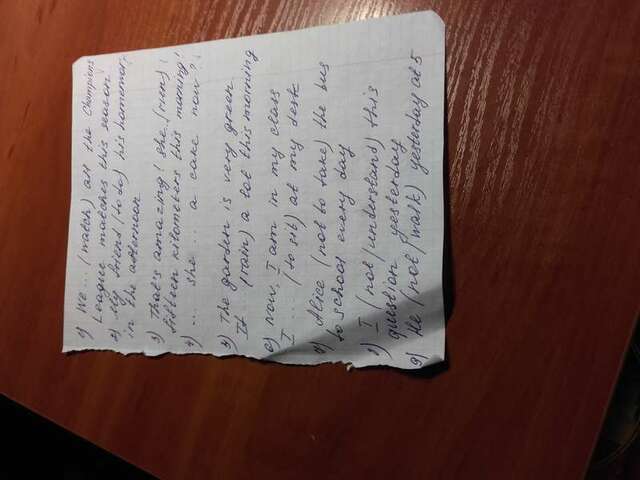 1) We ... (watch) all the Champions
League matches this season
2) My friend (to do) his homework
in the afternoon
3) That's amazing! She (run)
fifteen kilometers this morning!
4) ... she ... a cake now?
5) The garden is very green.
It (rain) a lot this morning
6) Now, I am in my class
I ... (to sit) at my desk
7) Alice (not to take) the bus
to school every day
8) I (not/understand) this
question yesterday
9) He (not/walk) yesterday at 5